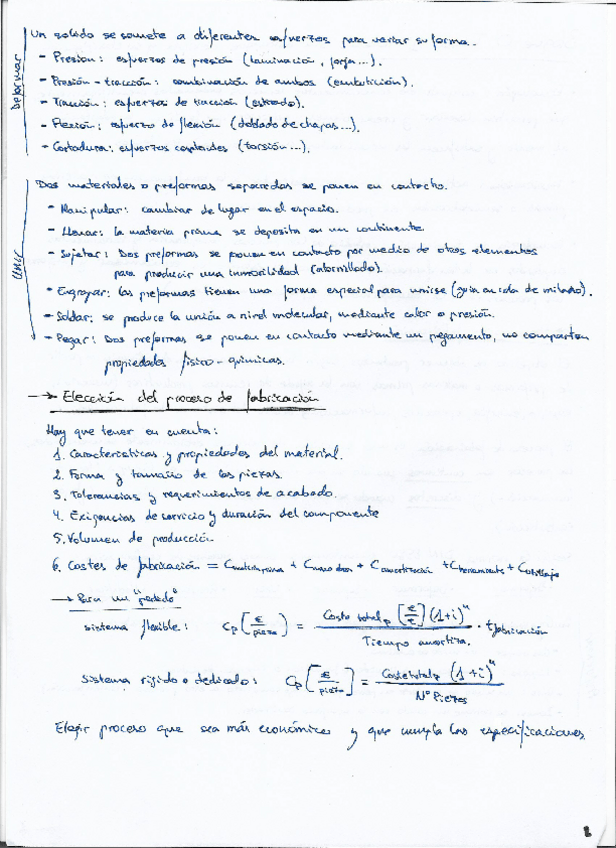 Deformar
Un solido se somete a diferentes esfuerzos para variar su forma.
- Presion: esfuerzos de presión (laminación, forja...).
- Presión-tracción: combinación de ambos (embutición).
- Tracción: esfuerzos de tracción (estirado).
- Flexión: esfuerzo de flexión (doblado de chapas...).
- Cortadura: esfuerzos cortantes (torsión...).
Unir
Dos materiales o preformas separadas se ponen en contacto.
- Manipular: cambiar de lugar en el espacio.
- Llenar: la materia prima se deposita en un continente
- Sujetar: Dos preformas se ponen en contacto por medio de otros elementos
para producir una inmovilidad (atornillado).
- Engrapar: las preformas tienen una forma especial para unirse (guía en cola de milano).
- Soldar: se produce la unión a nivel molecular, mediante calor o presión.
- Pegar: Dos preformas se ponen en contacto mediante un pegamento, no comparten
propiedades físico-químicas.
→ Elección del proceso de fabricación
Hay que tener en cuenta:
1. Características y propiedades del material.
2. Forma y tamaño de las piezas.
3. Tolerancias y requerimientos de acabado.
4. Exigencias de servicio y duración del componente
5. Volumen de producción
6. Costes de fabricación = Cmateria prima + Cmano obra + Camortización + Cherramienta + Cutillaje
→ Para un "pedido"
sistema flexible: Cp [€/pieza] = Coste totalp [€/t] (1+i)^n / Tiempo amortiza. · tfabricación
Sistema rígido o dedicado: Cp [€/pieza] = Coste totalp (1+i)^n / Nº Piezas
Elegir proceso que sea más económico y que cumpla las especificaciones.